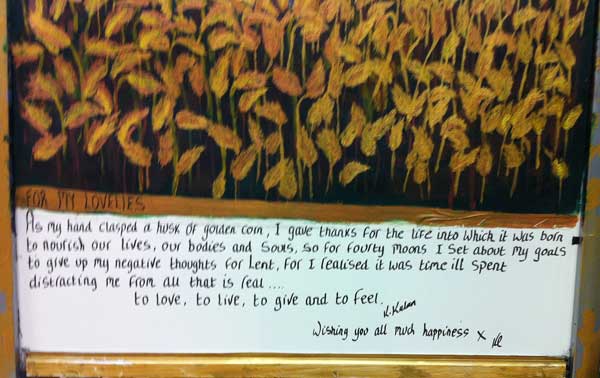 FOR MY LOVELIES
As my hand clasped a husk of golden corn, I gave thanks for the life into which it was born
to nourish our lives, our bodies and souls, so for fourty moons I set about my goals
to give up my negative thoughts for Lent, for I realised it was time ill spent
distracting me from all that is real ....
to love, to live, to give and to feel.
Wishing you all much happiness x